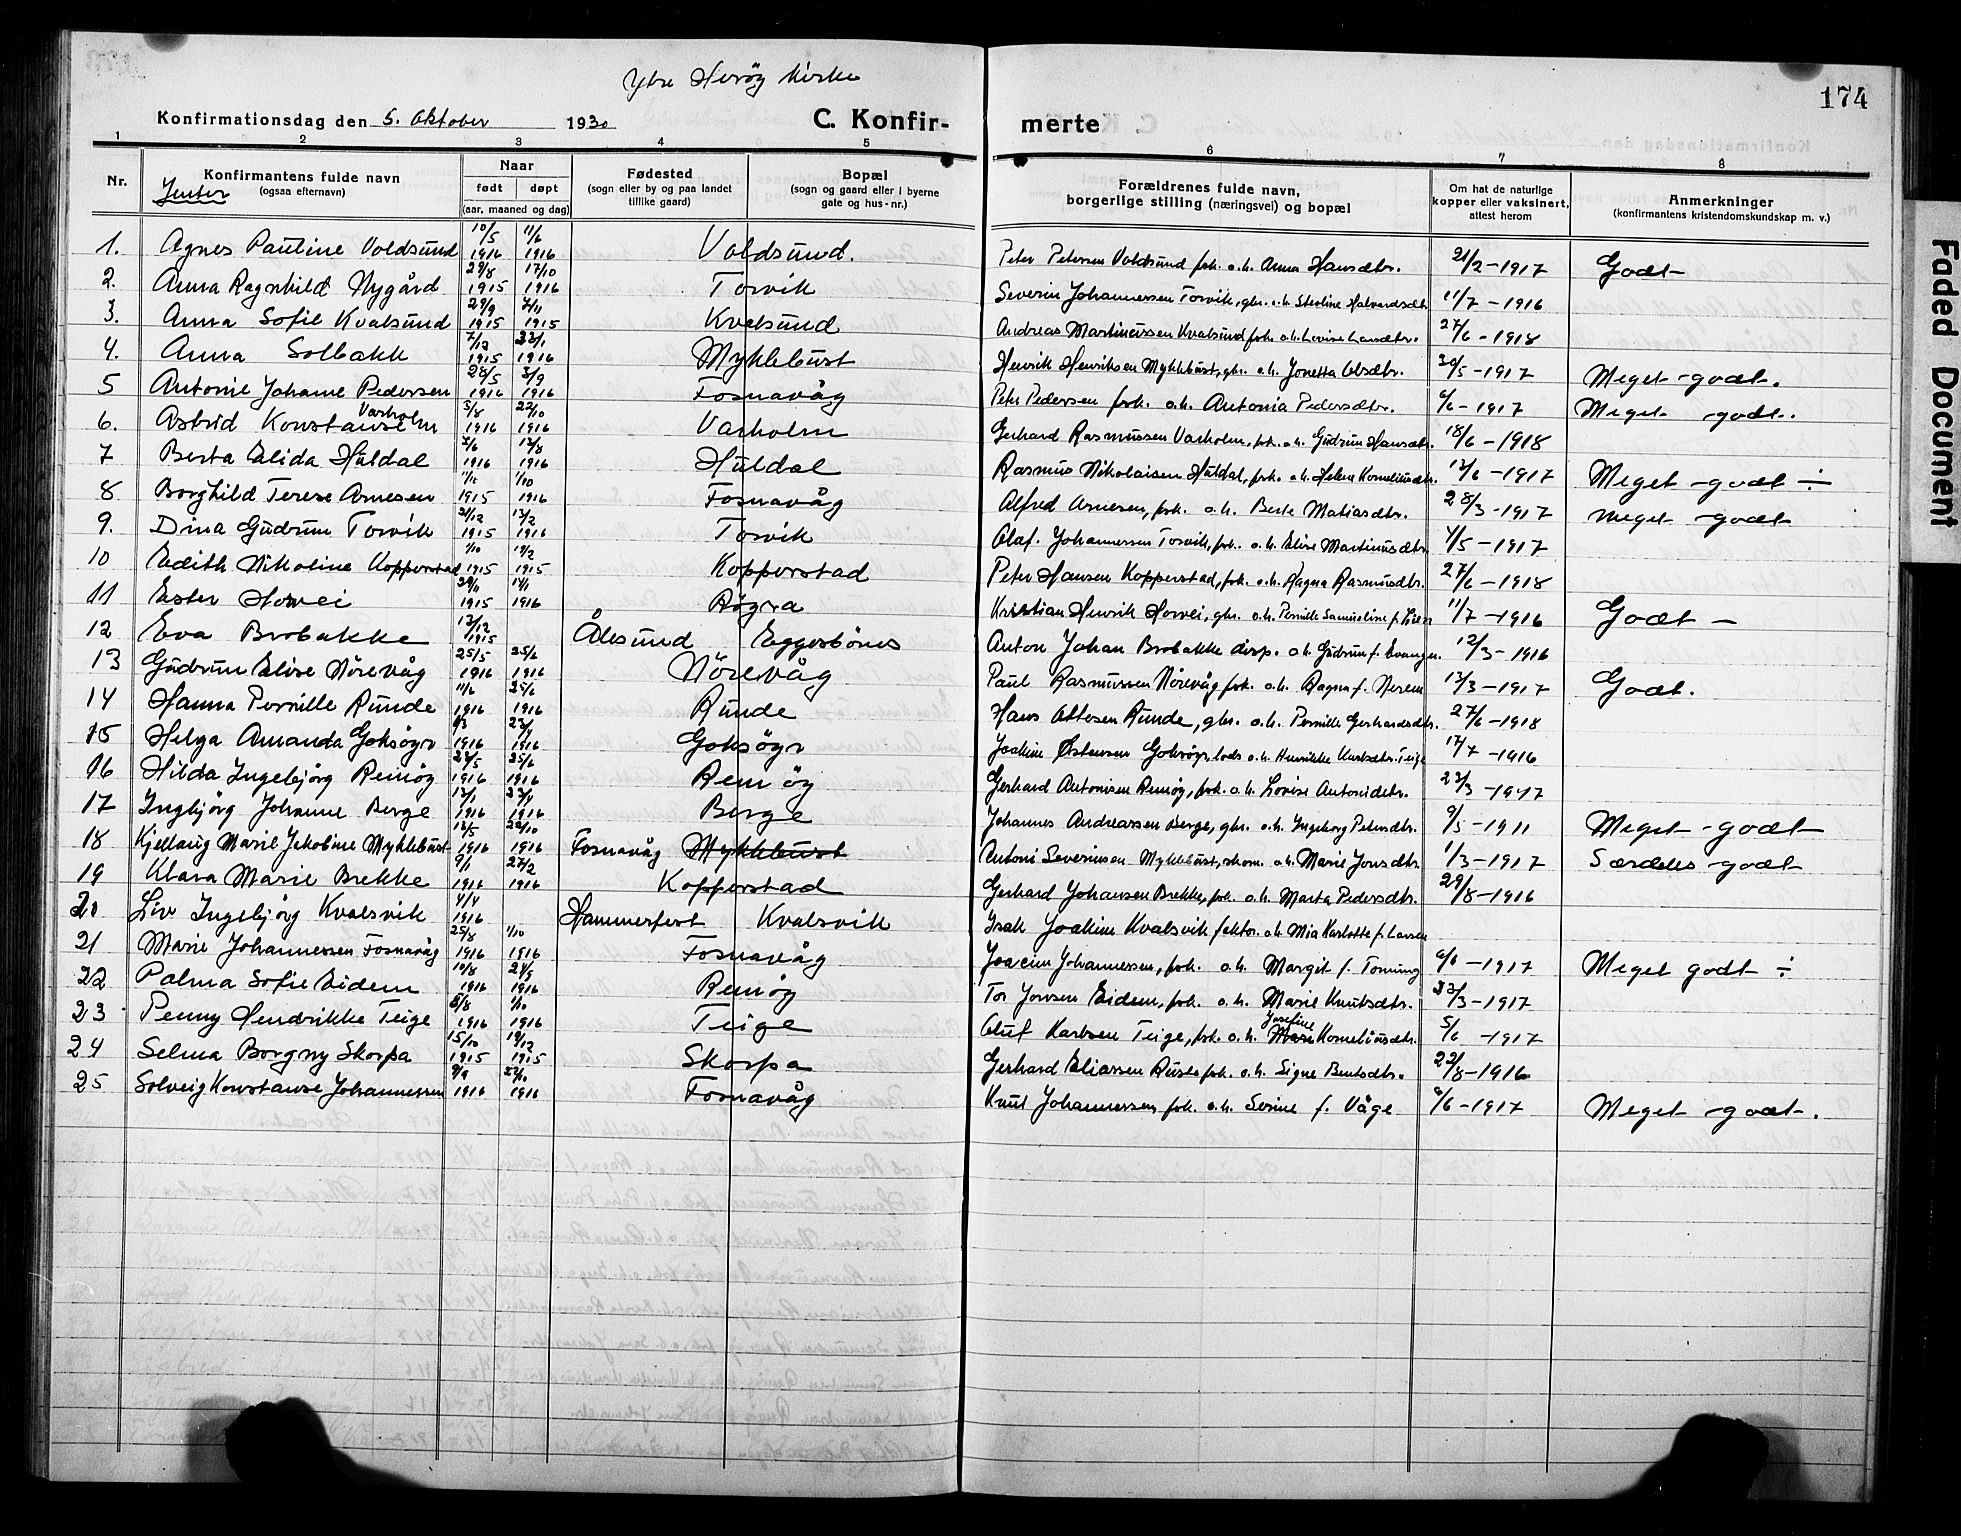 174
Ytre Herøy kirke
Konfirmationsdag den 5. Oktober 1930 C. Konfir- merte
1 2 3 4 5 6 7 8
Nr. Konfirmantens fulde navn (ogsaa efternavn) Naar født døpt (aar, maaned og dag) Fødested (sogn eller by og paa landet tillike gaard) Bopæl (sogn og gaard eller i byerne gate og hus-nr.) Forældrenes fulde navn, borgerlige stilling (næringsvei) og bopæl Om hat de naturlige kopper eller vaksinert, attest herom Anmerkninger (konfirmantens kristendomskundskap m. v.)
Jenter
1. Agnes Pauline Voldsund 10/5 1916 11/6 1916 Voldsund. Peter Petersen Voldsund fisk. o.h. Anna Hansdtr. 21/2-1917 Godt
2. Anna Ragnhild Nygård 29/8 1915 17/10 1916 Torvik Severin Johannessen Torvik, gbr. o.h. Steoline Halvardsdtr. 11/7-1916
3. Anna Sofie Kvalsund 29/9 1915 7/11 1915 Kvalsund Andreas Martinussen Kvalsund fisk. o.h. Lovise Larsdtr. 27/6-1918
4. Anna Solbakk 7/12 1915 23/1 1916 Myklebust Henrik Henriksen Myklebust, gbr. o.h. Jonetta Olsdtr. 30/5-1917 Meget godt.
5 Antonie Johanne Pedersen 28/5 1916 3/9 1916 Fosnavåg Peter Pedersen fisk. o.h. Antonia Pedersdtr. 6/6-1917 Meget godt.
6. Astrid Konstanse Varholm 5/8 1916 22/10 1916 Varholm Gerhard Rasmussen Varholm, fisk. o.h. Gudrun Hansdtr. 18/6-1918
7 Berta Elida Huldal 2/6 1916 13/8 1916 Huldal Rasmus Nikolaisen Huldal, fisk. o.h. Helene Korneliusdtr. 12/6-1917 Meget godt ÷
8 Borghild Terese Arnesen 1915 1/10 1916 Fosnavåg Alfred Arnesen, fisk. o.h. Berte Matiasdtr. 28/3-1917 Meget godt
9. Dina Gudrun Torvik 21/12 1915 13/2 1916 Torvik Olaf. Johannessen Torvik, fisk. o.h. Elise Martinusdtr. 4/5-1917
10 Edith Nikoline Kopperstad 1/10 1915 1915 Kopperstad Peter Hansen Kopperstad, fisk. o.h. Ragna Rasmusdtr. 27/6-1918
11 Ester Horvei 29/11 1915 1916 Røyra Kristian Henrik Horvei, gbr. o.h. Pernille Samueline f. 11/7-1916 Godt -
12 Eva Brobakke 12/12 1915 Ålesund Eggesbønes Anton Johan Brobakke disp. o.h. Gudrun f. 12/3-1916
13 Gudrun Elise Nörevåg 25/5 1916 25/6 1916 Nörevåg Paul Rasmussen Nörevåg fisk. o.h. Ragna f. Nerem 13/3-1917 Godt.
14 Hanna Pernille Runde 11/6 1916 25/6 1916 Runde Hans Ottesen Runde, gbr. o.h. Pernille Gerhardsdtr. 27/6-1918
15 Helga Amanda Goksöyr 1916 23/4 1916 Goksöyr Joakim Østensen Goksöyr, lods o.h. Henrikke Karlsdtr. Teige 17/7-1916
16 Hilda Ingebjörg Remöy 22/5 1916 25/6 1916 Remöy Gerhard Antonisen Remöy, fisk. o.h. Lovise Antonidtr. 23/3-1917
17 Ingbjörg Johanne Berge 12/1 1916 23/4 1916 Berge Johannes Andreassen Berge, gbr. o.h. Ingeborg Petersdtr. 9/5-1911 Meget godt
18 Kjellaug Marie Jakobine Myklebust 12/5 1916 22/10 1916 Fosnavåg Myklebust Antoni Severinsen Myklebust, skom. o.h. Marie Jonsdtr. 1/3-1917 Særdeles godt
19 Klara Marie Brekke 9/1 1916 27/2 1916 Kopperstad Gerhard Johansen Brekke, fisk. o.h. Marta Pedersdtr. 29/8-1916
20 Liv Ingebjörg Kvalsvik 4/4 1916 Hammerfest Kvalsvik Isak Joakim Kvalsvik faktor. o.h. Mia Karlotte f. Larsen
21 Marie Johannessen Fosnavåg 25/8 1916 1/10 1916 Fosnavåg Joacim Johannessen, fisk. o.h. Margit f. 6/6-1917 Meget godt ÷
22 Palma Sofie Eidem 10/8 1916 24/9 1916 Remöy Tor Jonsen Eidem, fisk. o.h. Marie Knutsdtr. 23/3-1917
23 Penny Hendrikke Teige 8/8 1916 1/10 1916 Teige Oluf Karlsen Teige, fisk. o.h. Marie Josefine Korneliusdtr. 5/6-1917
24 Selma Borgny Skorpa 15/10 1915 19/12 1915 Skorpa Gerhard Eliassen fisk. o.h. Signe Bentsdtr. 22/8-1916
25 Solveig Konstanse Johannessen 9/9 1916 22/10 1916 Fosnavåg Knut Johannessen, fisk. o.h. Serine f. Våge 6/6-1917 Meget godt.
Faded Document